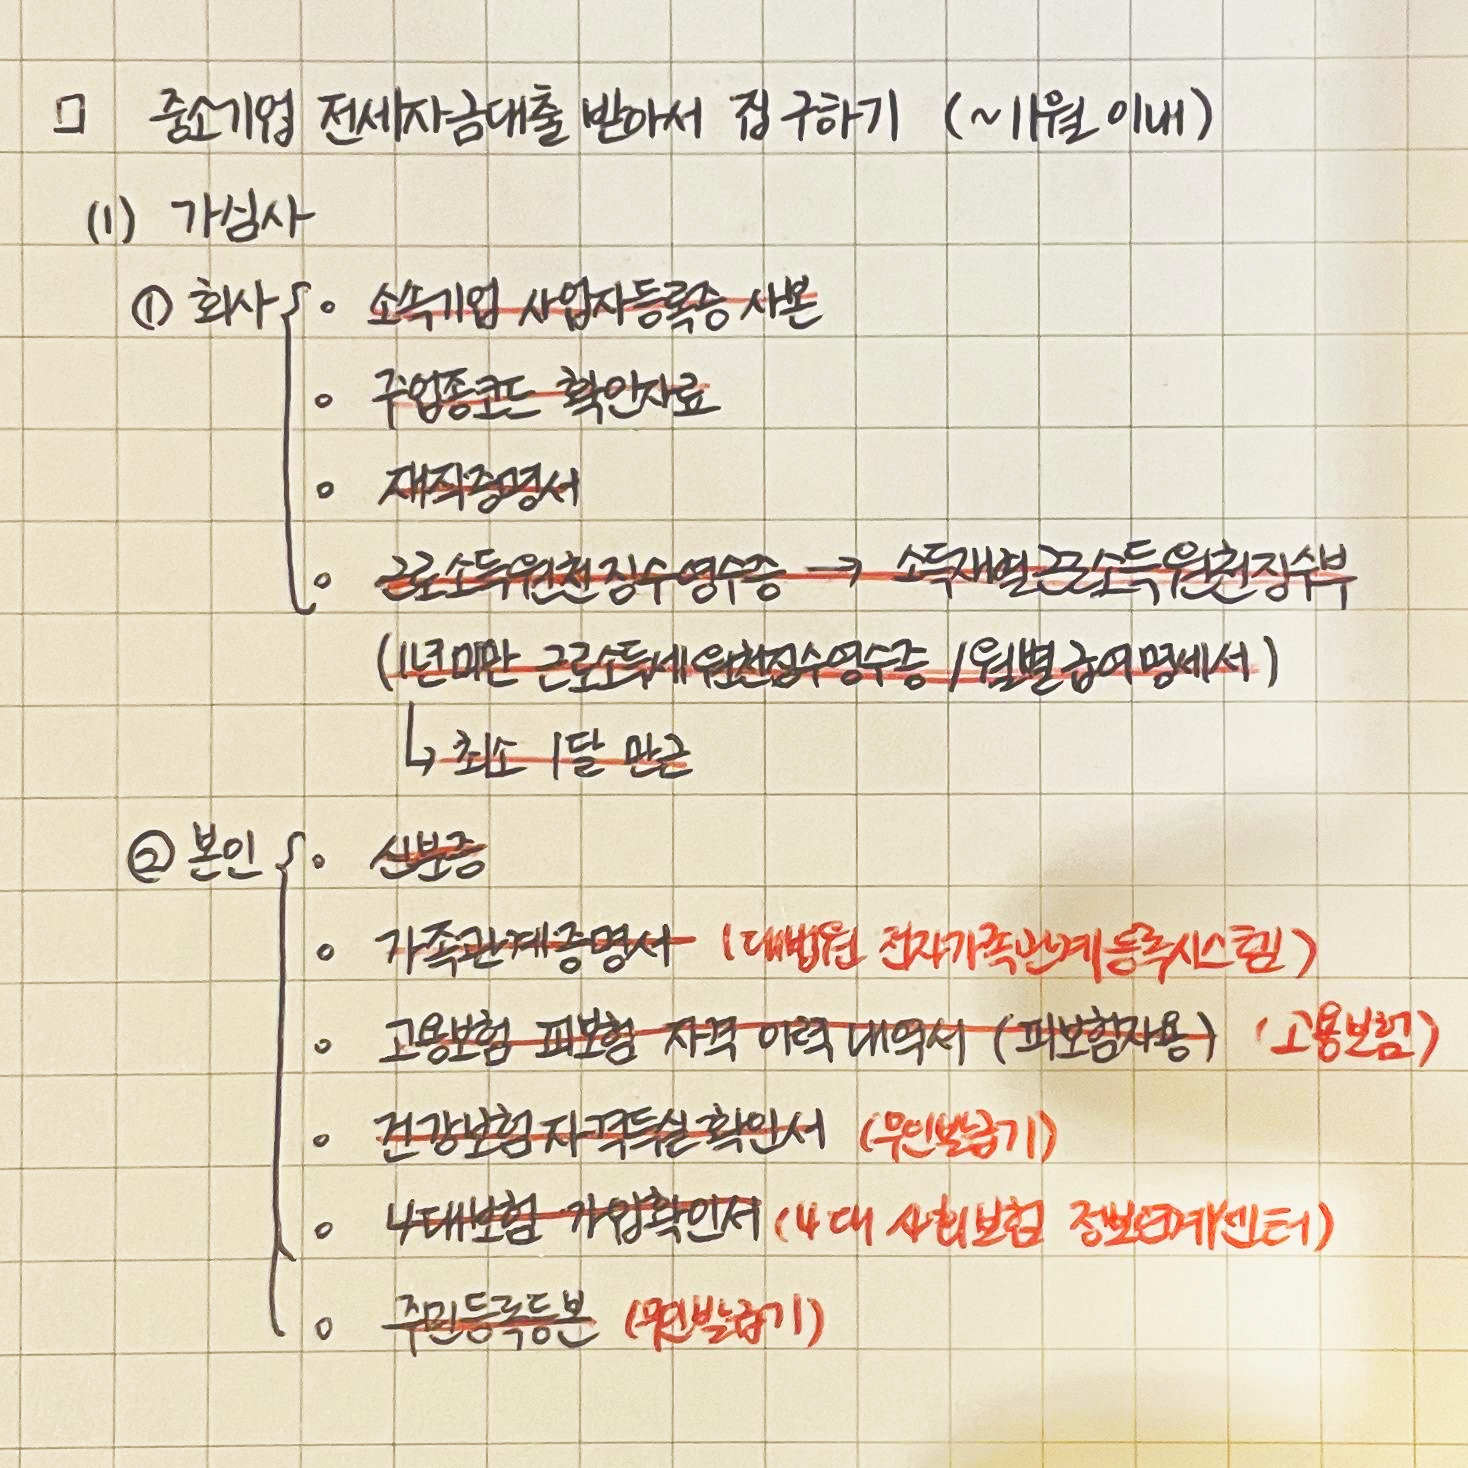 □ 중소기업 전세자금대출 받아서 집 구하기 (~11월 이내)
(1) 가심사
① 회사 { • 소속기업 사업자등록증 사본
• 주업종코드 확인자료
• 재직증명서
• 근로소득원천징수영수증 → 소득재별근로소득원천징수부
(1년미만 근로소득세원천징수영수증 / 월별급여명세서)
↳ 최소 1달 만근
② 본인 { • 신분증
• 가족관계증명서 (대법원 전자가족관계등록시스템)
• 고용보험 피보험 자격 이력 내역서 (피보험자용) (고용보험)
• 건강보험자격득실확인서 (무인발급기)
• 4대보험 가입확인서 (4대 사회보험 정보연계센터)
• 주민등록등본 (무인발급기)